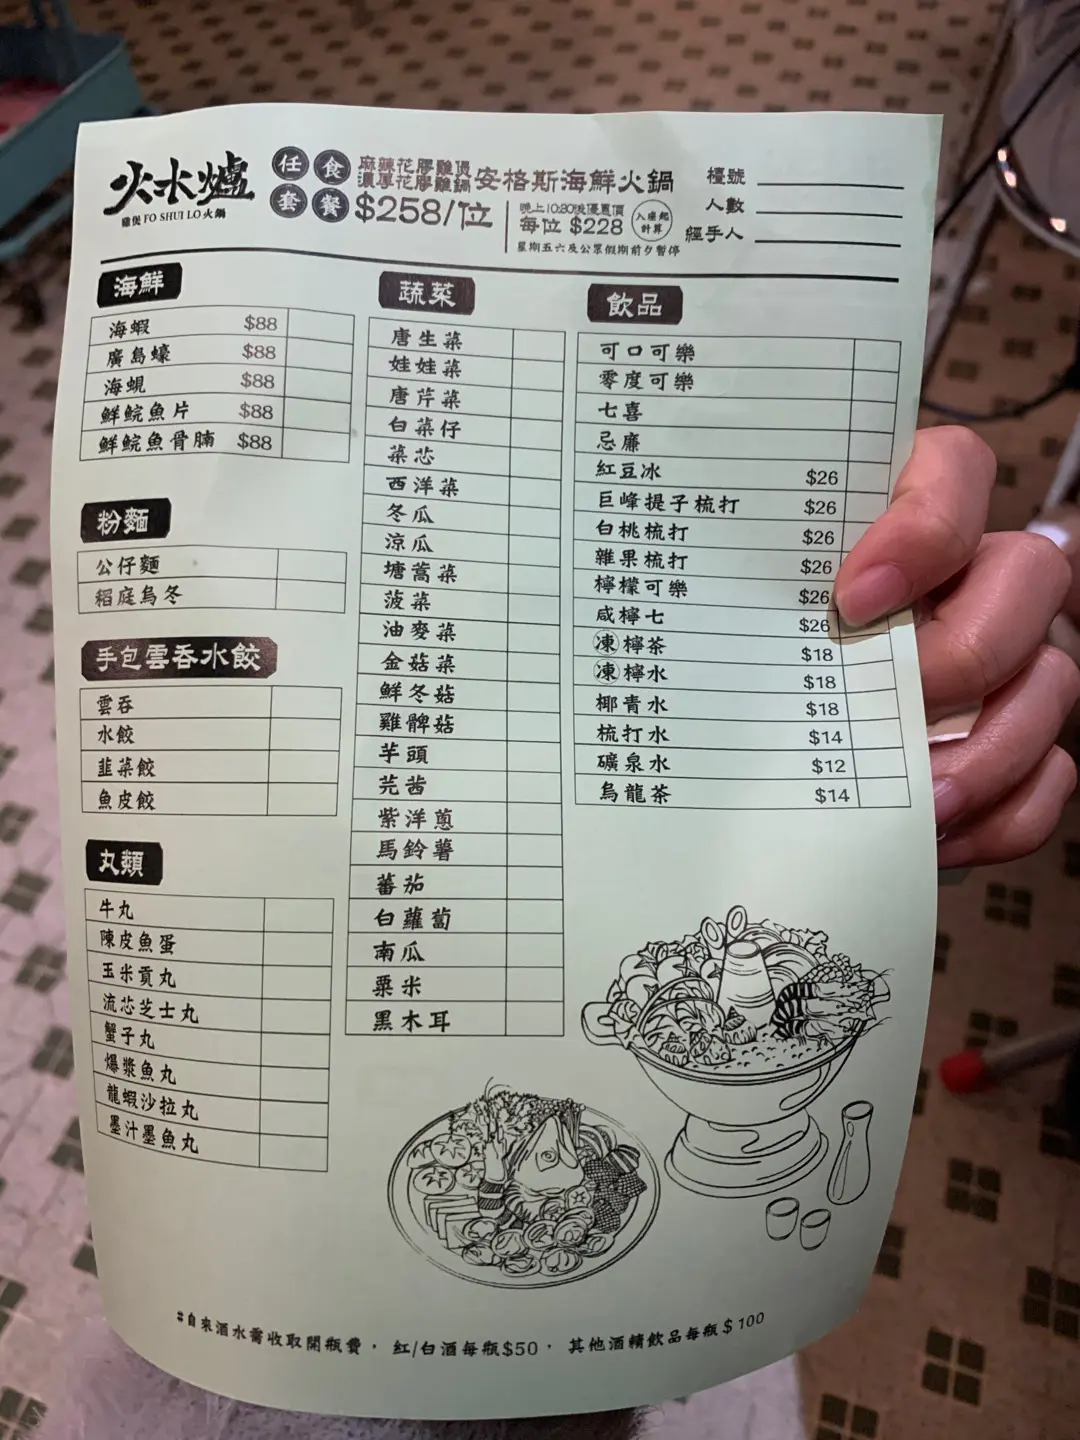 火水爐
雞煲 FO SHUI LO 火鍋
任食套餐
麻辣花膠雞煲
濃厚花膠雞鍋
安格斯海鮮火鍋
$258/位
晚上10:30後優惠價
每位 $228
入座起計算
星期五六及公眾假期前夕暫停
檯號
人數
經手人
海鮮
海蝦 $88
廣島蠔 $88
海蜆 $88
鮮鯇魚片 $88
鮮鯇魚骨腩 $88
粉麵
公仔麵
稻庭烏冬
手包雲吞水餃
雲吞
水餃
韮菜餃
魚皮餃
丸類
牛丸
陳皮魚蛋
玉米貢丸
流芯芝士丸
蟹子丸
爆漿魚丸
龍蝦沙拉丸
墨汁墨魚丸
蔬菜
唐生菜
娃娃菜
唐芹菜
白菜仔
菜芯
西洋菜
冬瓜
涼瓜
塘蒿菜
菠菜
油麥菜
金菇菜
鮮冬菇
雞髀菇
芋頭
芫茜
紫洋蔥
馬鈴薯
蕃茄
白蘿蔔
南瓜
粟米
黑木耳
飲品
可口可樂
零度可樂
七喜
忌廉
紅豆冰 $26
巨峰提子梳打 $26
白桃梳打 $26
雜果梳打 $26
檸檬可樂 $26
咸檸七 $26
凍檸茶 $18
凍檸水 $18
椰青水 $18
梳打水 $14
礦泉水 $12
烏龍茶 $14
#自來酒水需收取開瓶費， 紅/白酒每瓶$50， 其他酒精飲品每瓶$100